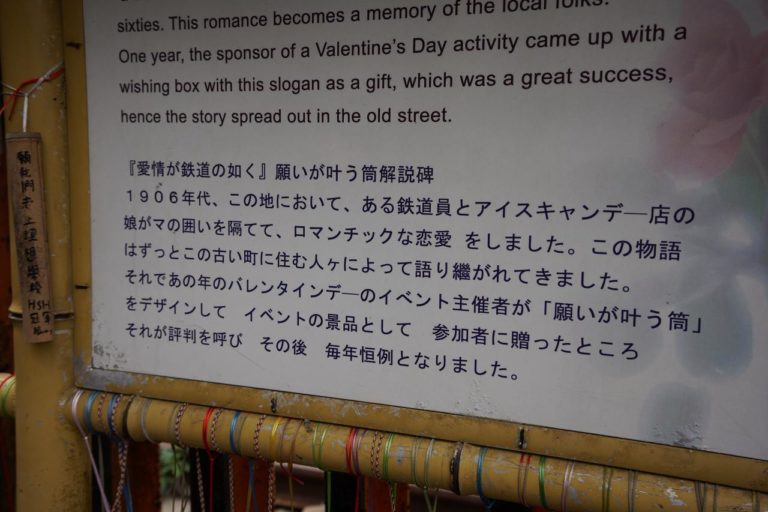 sixties. This romance becomes a memory of the local folks.
One year, the sponsor of a Valentine's Day activity came up with a
wishing box with this slogan as a gift, which was a great success,
hence the story spread out in the old street.
『愛情が鉄道の如く』願いが叶う筒解説碑
1906年代、この地において、ある鉄道員とアイスキャンデ―店の
娘がマの囲いを隔てて、ロマンチックな恋愛 をしました。この物語
はずっとこの古い町に住む人ヶによって語り継がれてきました。
それであの年のバレンタインデ―のイベント主催者が「願いが叶う筒」
をデザインして イベントの景品として 参加者に贈ったところ
それが評判を呼び その後 毎年恒例となりました。
願我們考上理想學校
HSH